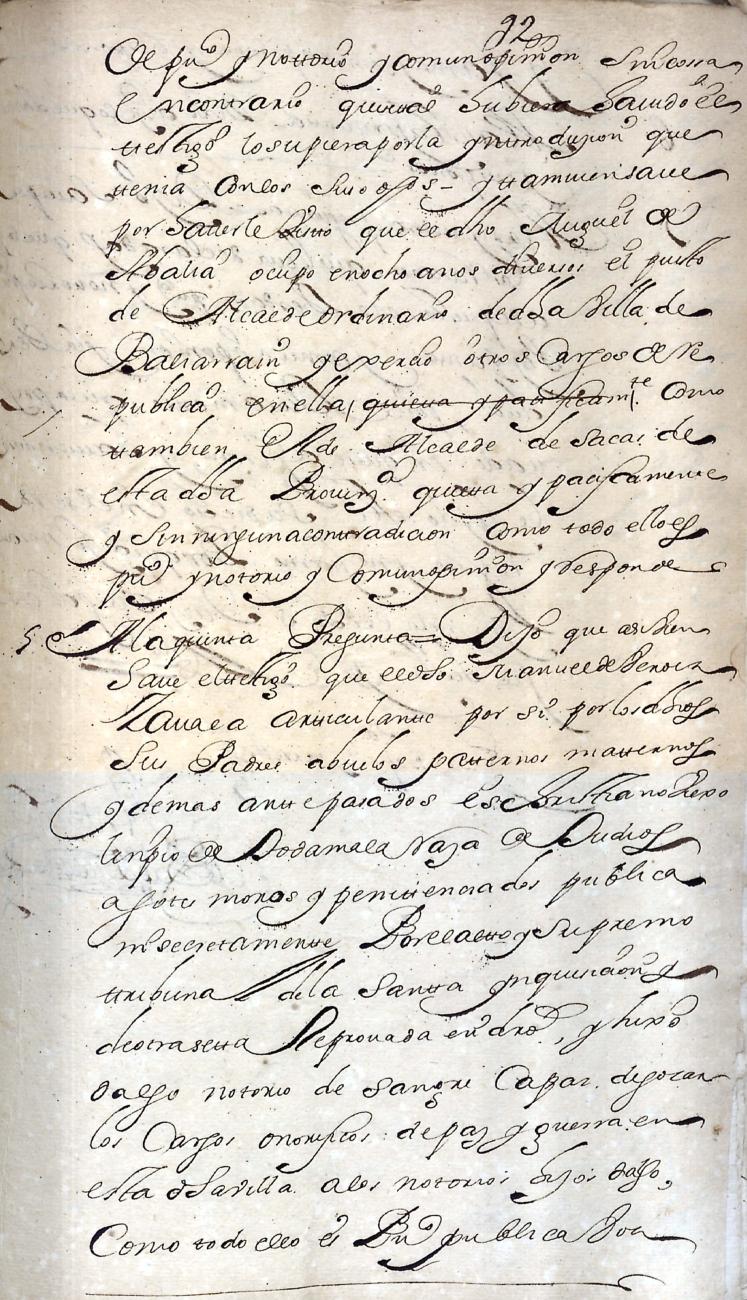 92
de pu^co y nottorio y comun opinion sin cossa
encontrario que si tal hubiera havido el
ttestigo lo supiera por la ynttroduzion que
ttenia con los suso ôs – y ttamvien save
por haverle visto que el dho Miguel de
Abalia ocupo en ocho años diversos el puesto
de Alcalde ordinario de dha Villa de
Baliarrain y exercio otros Cargos de Re
publica en ella, quieta y pacificam^te como
ttambien el de Alcalde de sacas de
esta dha Provinz^a quieta y pacificamente
y sin ninguna contradicion como todo ello es
pu^co y notorio y comun opinion y responde
5 A la quinta Pregunta = Dijo que asi bien
save el ttestigo que el dho Manuel de
Zavala articulante por si y por los dhos
sus Padres abuelos patternos matternos
y demas antte pasados es christiano viejo
limpio de toda mala raza de Judios
agotes moros y penitenciados publica
ni secretamente Por el altto y supremo
ttribunal de la Santta ynquisicion y
de otra setta Reprovada en dro, y hijo
dalgo notorio de sangre Capaz de gozar
los Cargos onorificos de paz y guerra en
esta dha villa a los notorios hijos dalgo,
Como todo ello es Pu^co publica voz